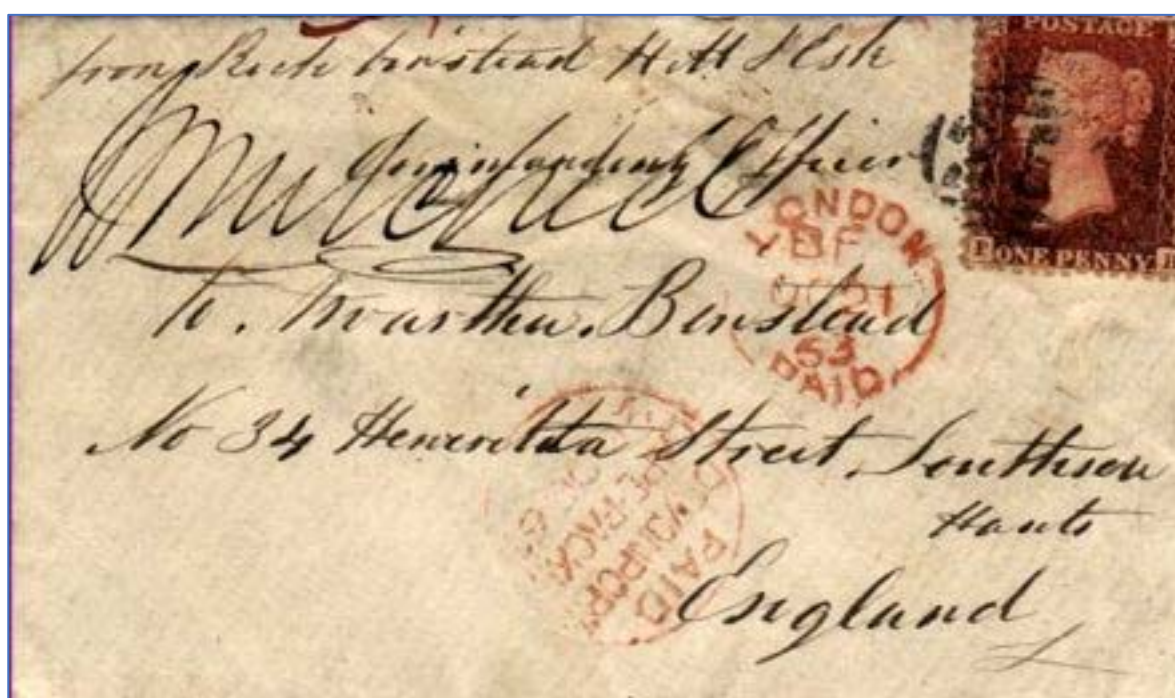 from Rich Binstead H M S Esk
Commanding Officer
To, Martha, Binstead
No 34 Heneritta Street, Southsea
Hants
England
POSTAGE
ONE PENNY
LONDON
BF
OC 21
53
PAID
PAID